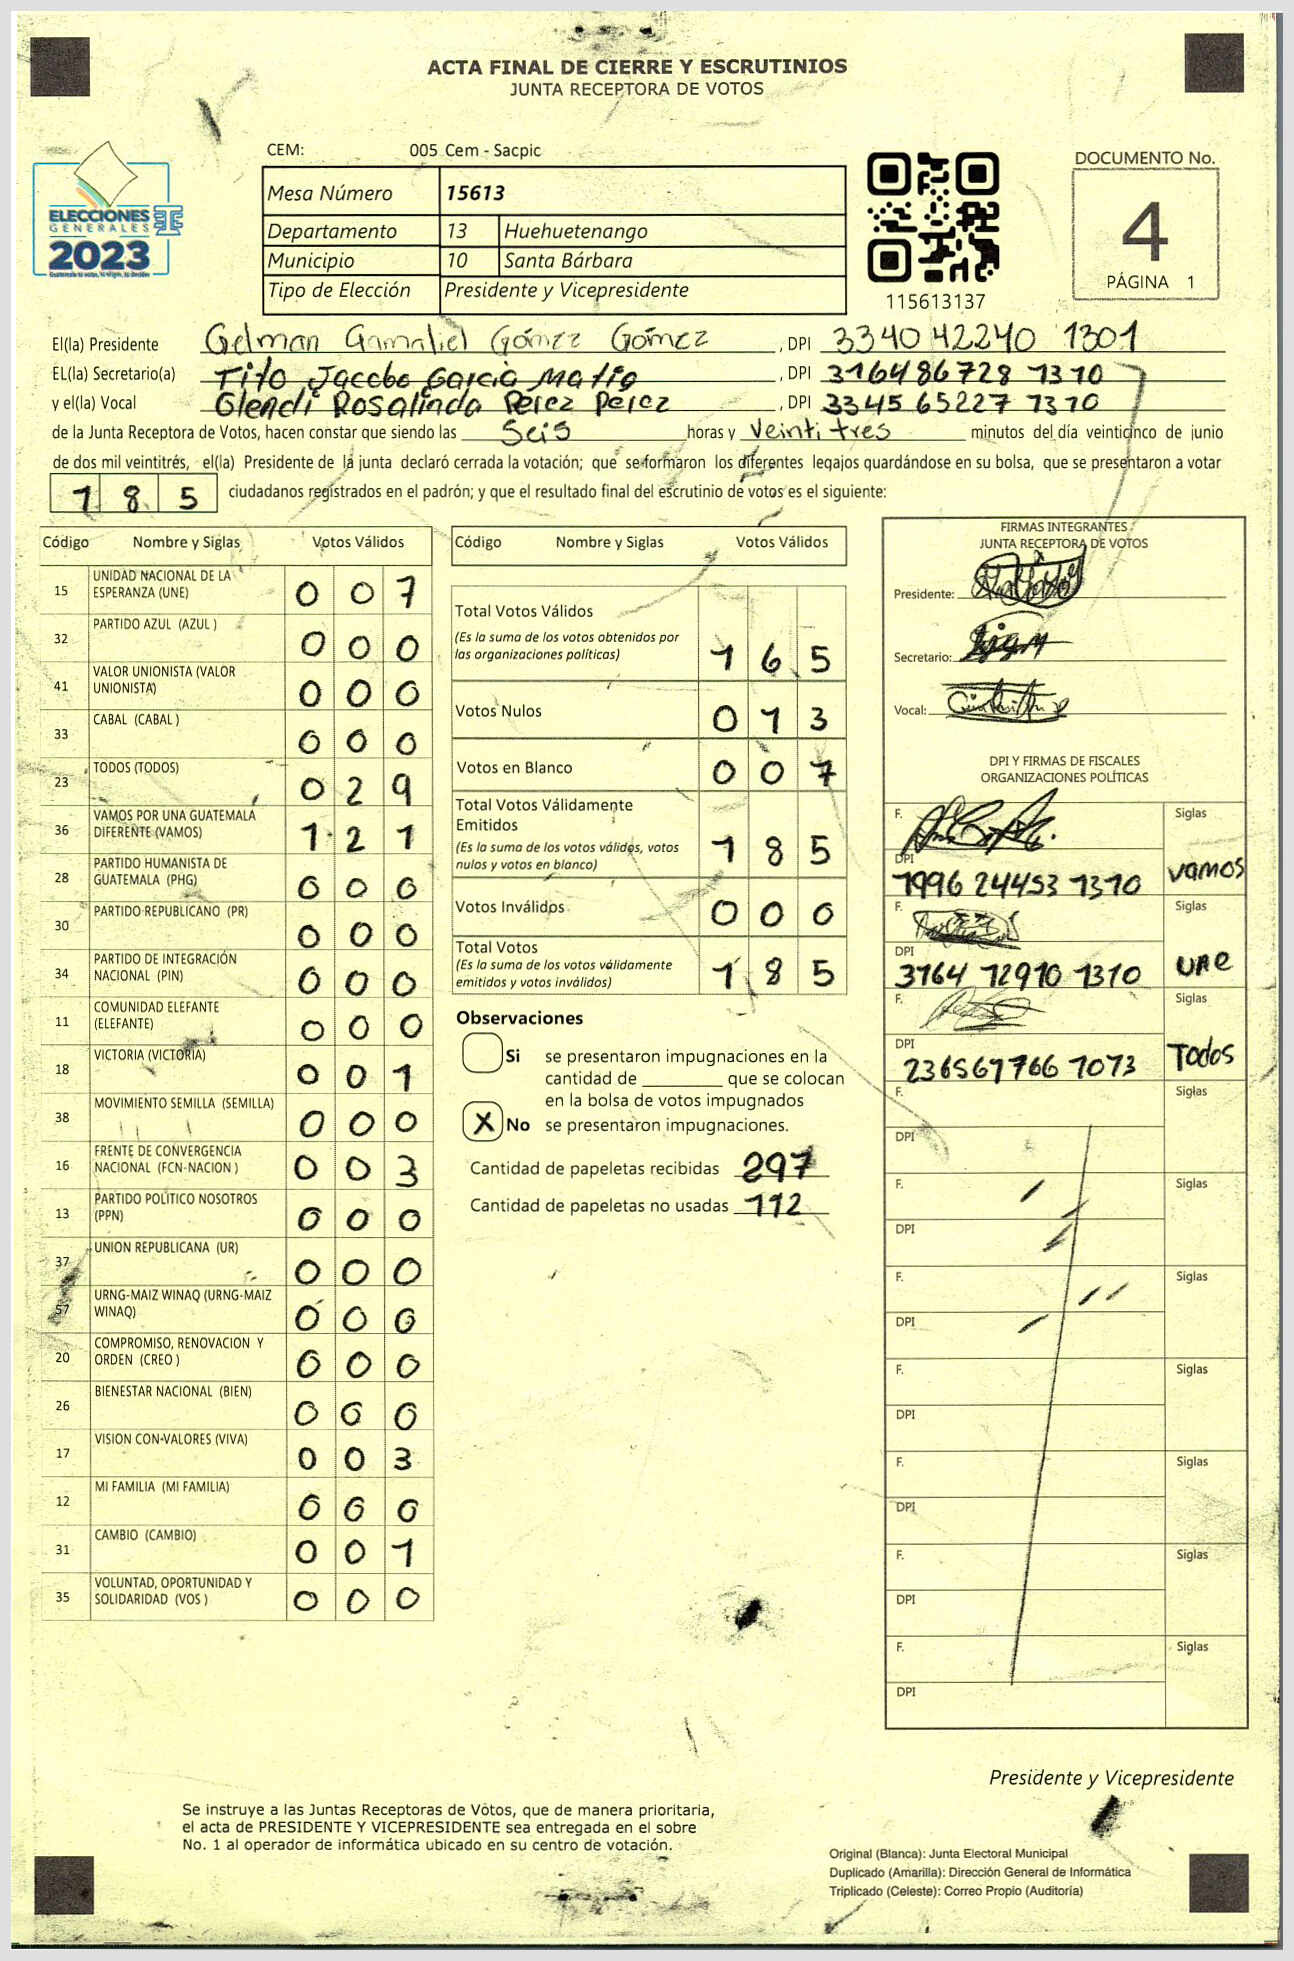 ACTA FINAL DE CIERRE Y ESCRUTINIOS
JUNTA RECEPTORA DE VOTOS
ELECCIONES
GENERALES
2023
CEM: 005 Cem - Sacpic
Mesa Número 15613
Departamento 13 Huehuetenango
Municipio 10 Santa Bárbara
Tipo de Elección Presidente y Vicepresidente
115613137
DOCUMENTO No.
4
PÁGINA 1
El(la) Presidente Gelman Gamaliel Gómez Gómez, DPI 3340 42240 1301
EL(la) Secretario(a) Tito Jacobo García Matíg, DPI 3164 86728 1310
y el(la) Vocal Glendi Rosalinda Pérez Pérez, DPI 3345 65227 1310
de la Junta Receptora de Votos, hacen constar que siendo las Seis horas y Veintitres minutos del día veinticinco de junio
de dos mil veintitrés, el(la) Presidente de la junta declaró cerrada la votación; que se formaron los diferentes legajos guardándose en su bolsa, que se presentaron a votar
185 ciudadanos registrados en el padrón; y que el resultado final del escrutinio de votos es el siguiente:
Código Nombre y Siglas Votos Válidos
15 UNIDAD NACIONAL DE LA ESPERANZA (UNE) 0 0 7
32 PARTIDO AZUL (AZUL ) 0 0 0
41 VALOR UNIONISTA (VALOR UNIONISTA) 0 0 0
33 CABAL (CABAL ) 0 0 0
23 TODOS (TODOS) 0 2 9
36 VAMOS POR UNA GUATEMALA DIFERENTE (VAMOS) 1 2 1
28 PARTIDO HUMANISTA DE GUATEMALA (PHG) 0 0 0
30 PARTIDO REPUBLICANO (PR) 0 0 0
34 PARTIDO DE INTEGRACIÓN NACIONAL (PIN) 0 0 0
11 COMUNIDAD ELEFANTE (ELEFANTE) 0 0 0
18 VICTORIA (VICTORIA) 0 0 1
38 MOVIMIENTO SEMILLA (SEMILLA) 0 0 0
16 FRENTE DE CONVERGENCIA NACIONAL (FCN-NACION ) 0 0 3
13 PARTIDO POLITICO NOSOTROS (PPN) 0 0 0
37 UNION REPUBLICANA (UR) 0 0 0
57 URNG-MAIZ WINAQ (URNG-MAIZ WINAQ) 0 0 0
20 COMPROMISO, RENOVACION Y ORDEN (CREO ) 0 0 0
26 BIENESTAR NACIONAL (BIEN) 0 0 0
17 VISION CON VALORES (VIVA) 0 0 3
12 MI FAMILIA (MI FAMILIA) 0 0 0
31 CAMBIO (CAMBIO) 0 0 1
35 VOLUNTAD, OPORTUNIDAD Y SOLIDARIDAD (VOS ) 0 0 0
Código Nombre y Siglas Votos Válidos
Total Votos Válidos 1 6 5
(Es la suma de los votos obtenidos por
las organizaciones políticas)
Votos Nulos 0 1 3
Votos en Blanco 0 0 7
Total Votos Válidamente
Emitidos 1 8 5
(Es la suma de los votos válidos, votos
nulos y votos en blanco)
Votos Inválidos 0 0 0
Total Votos 1 8 5
(Es la suma de los votos válidamente
emitidos y votos inválidos)
Observaciones
Si se presentaron impugnaciones en la
cantidad de ________ que se colocan
en la bolsa de votos impugnados
X No se presentaron impugnaciones.
Cantidad de papeletas recibidas 297
Cantidad de papeletas no usadas 112
FIRMAS INTEGRANTES
JUNTA RECEPTORA DE VOTOS
Presidente:
Secretario:
Vocal:
DPI Y FIRMAS DE FISCALES
ORGANIZACIONES POLÍTICAS
F. Siglas
DPI 1996 24453 1310 Vamos
F. Siglas
DPI 3164 12910 1310 UNE
F. Siglas
DPI 2365 67766 1073 Todos
F. Siglas
DPI
F. Siglas
DPI
F. Siglas
DPI
F. Siglas
DPI
F. Siglas
DPI
F. Siglas
DPI
F. Siglas
DPI
Presidente y Vicepresidente
Se instruye a las Juntas Receptoras de Votos, que de manera prioritaria,
el acta de PRESIDENTE Y VICEPRESIDENTE sea entregada en el sobre
No. 1 al operador de informática ubicado en su centro de votación.
Original (Blanca): Junta Electoral Municipal
Duplicado (Amarilla): Dirección General de Informática
Triplicado (Celeste): Correo Propio (Auditoría)